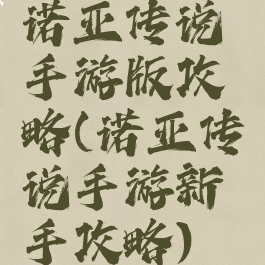 诺亚传说
手游版攻
略(诺亚传
说手游新
手攻略)